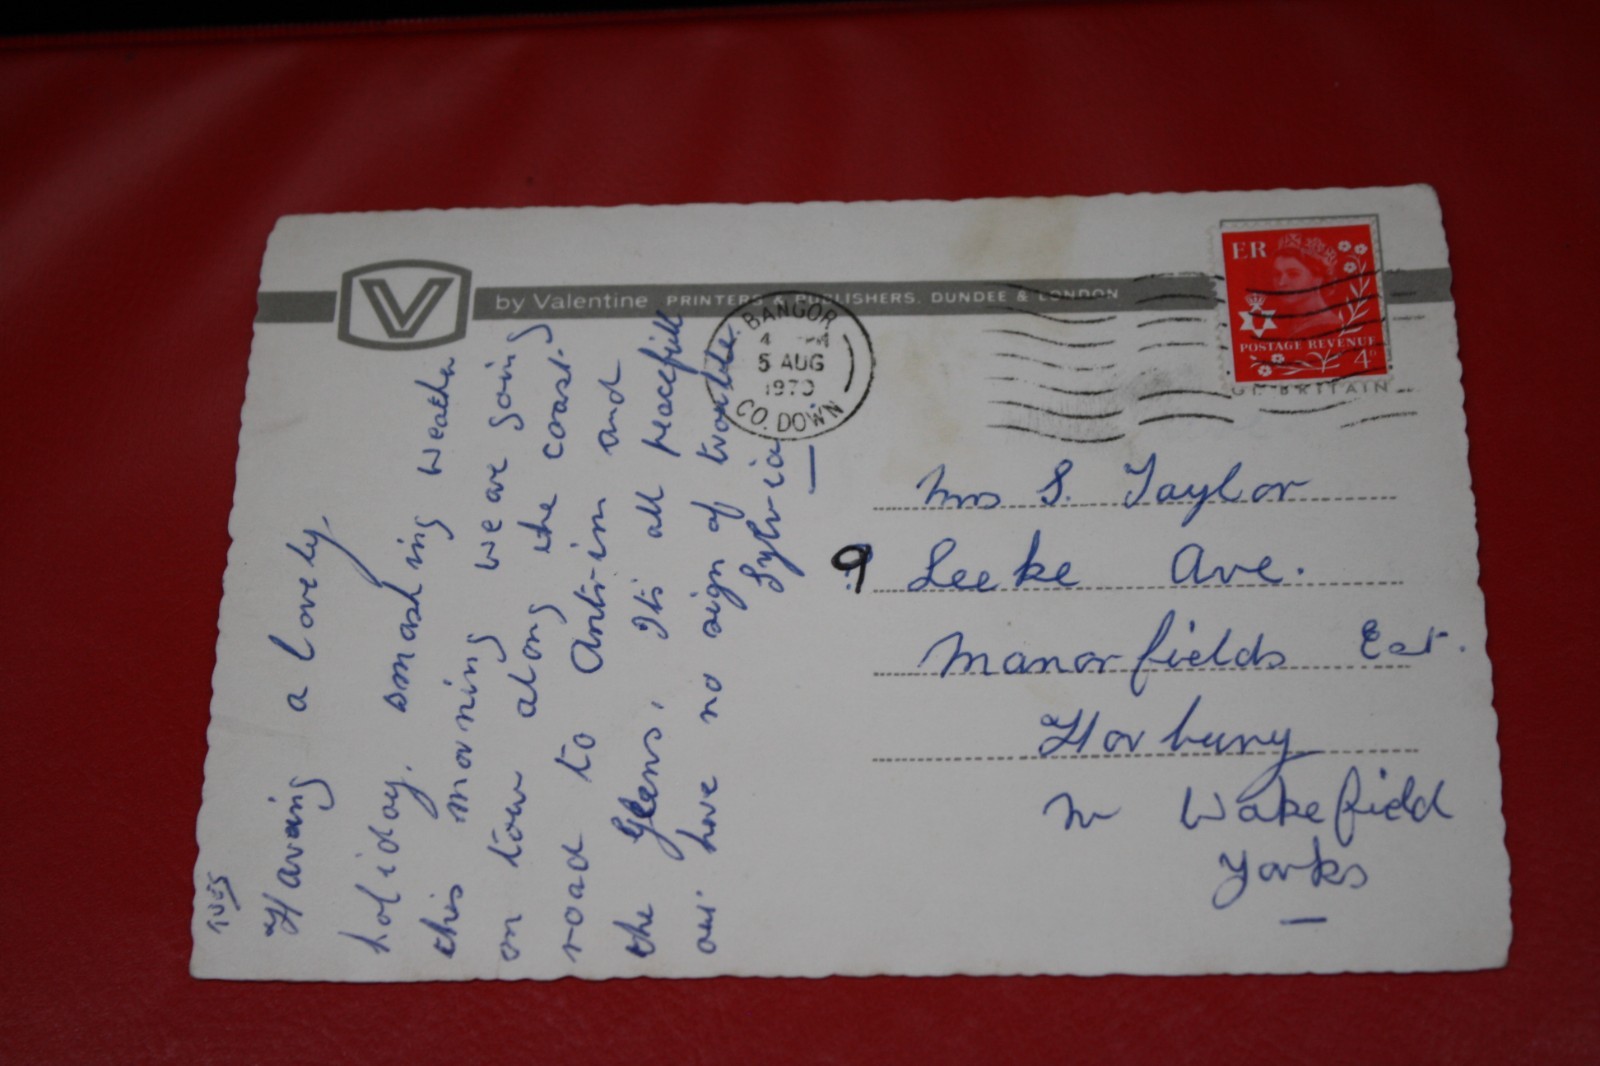 V by Valentine PRINTERS & PUBLISHERS. DUNDEE & LONDON
TUES
Having a lovely
holiday. smashing weather
this morning we are going
on tour along the coast
road to Antrim and
the Glens. It's all peacefull
and have no sign of trouble.
Sylvia
BANGOR
4 PM
5 AUG
1970
CO. DOWN
ER
POSTAGE REVENUE
4D
GT. BRITAIN
Mrs S. Taylor
9 Leeke Ave.
Manorfields Est.
Horbury
Nr Wakefield
Yorks